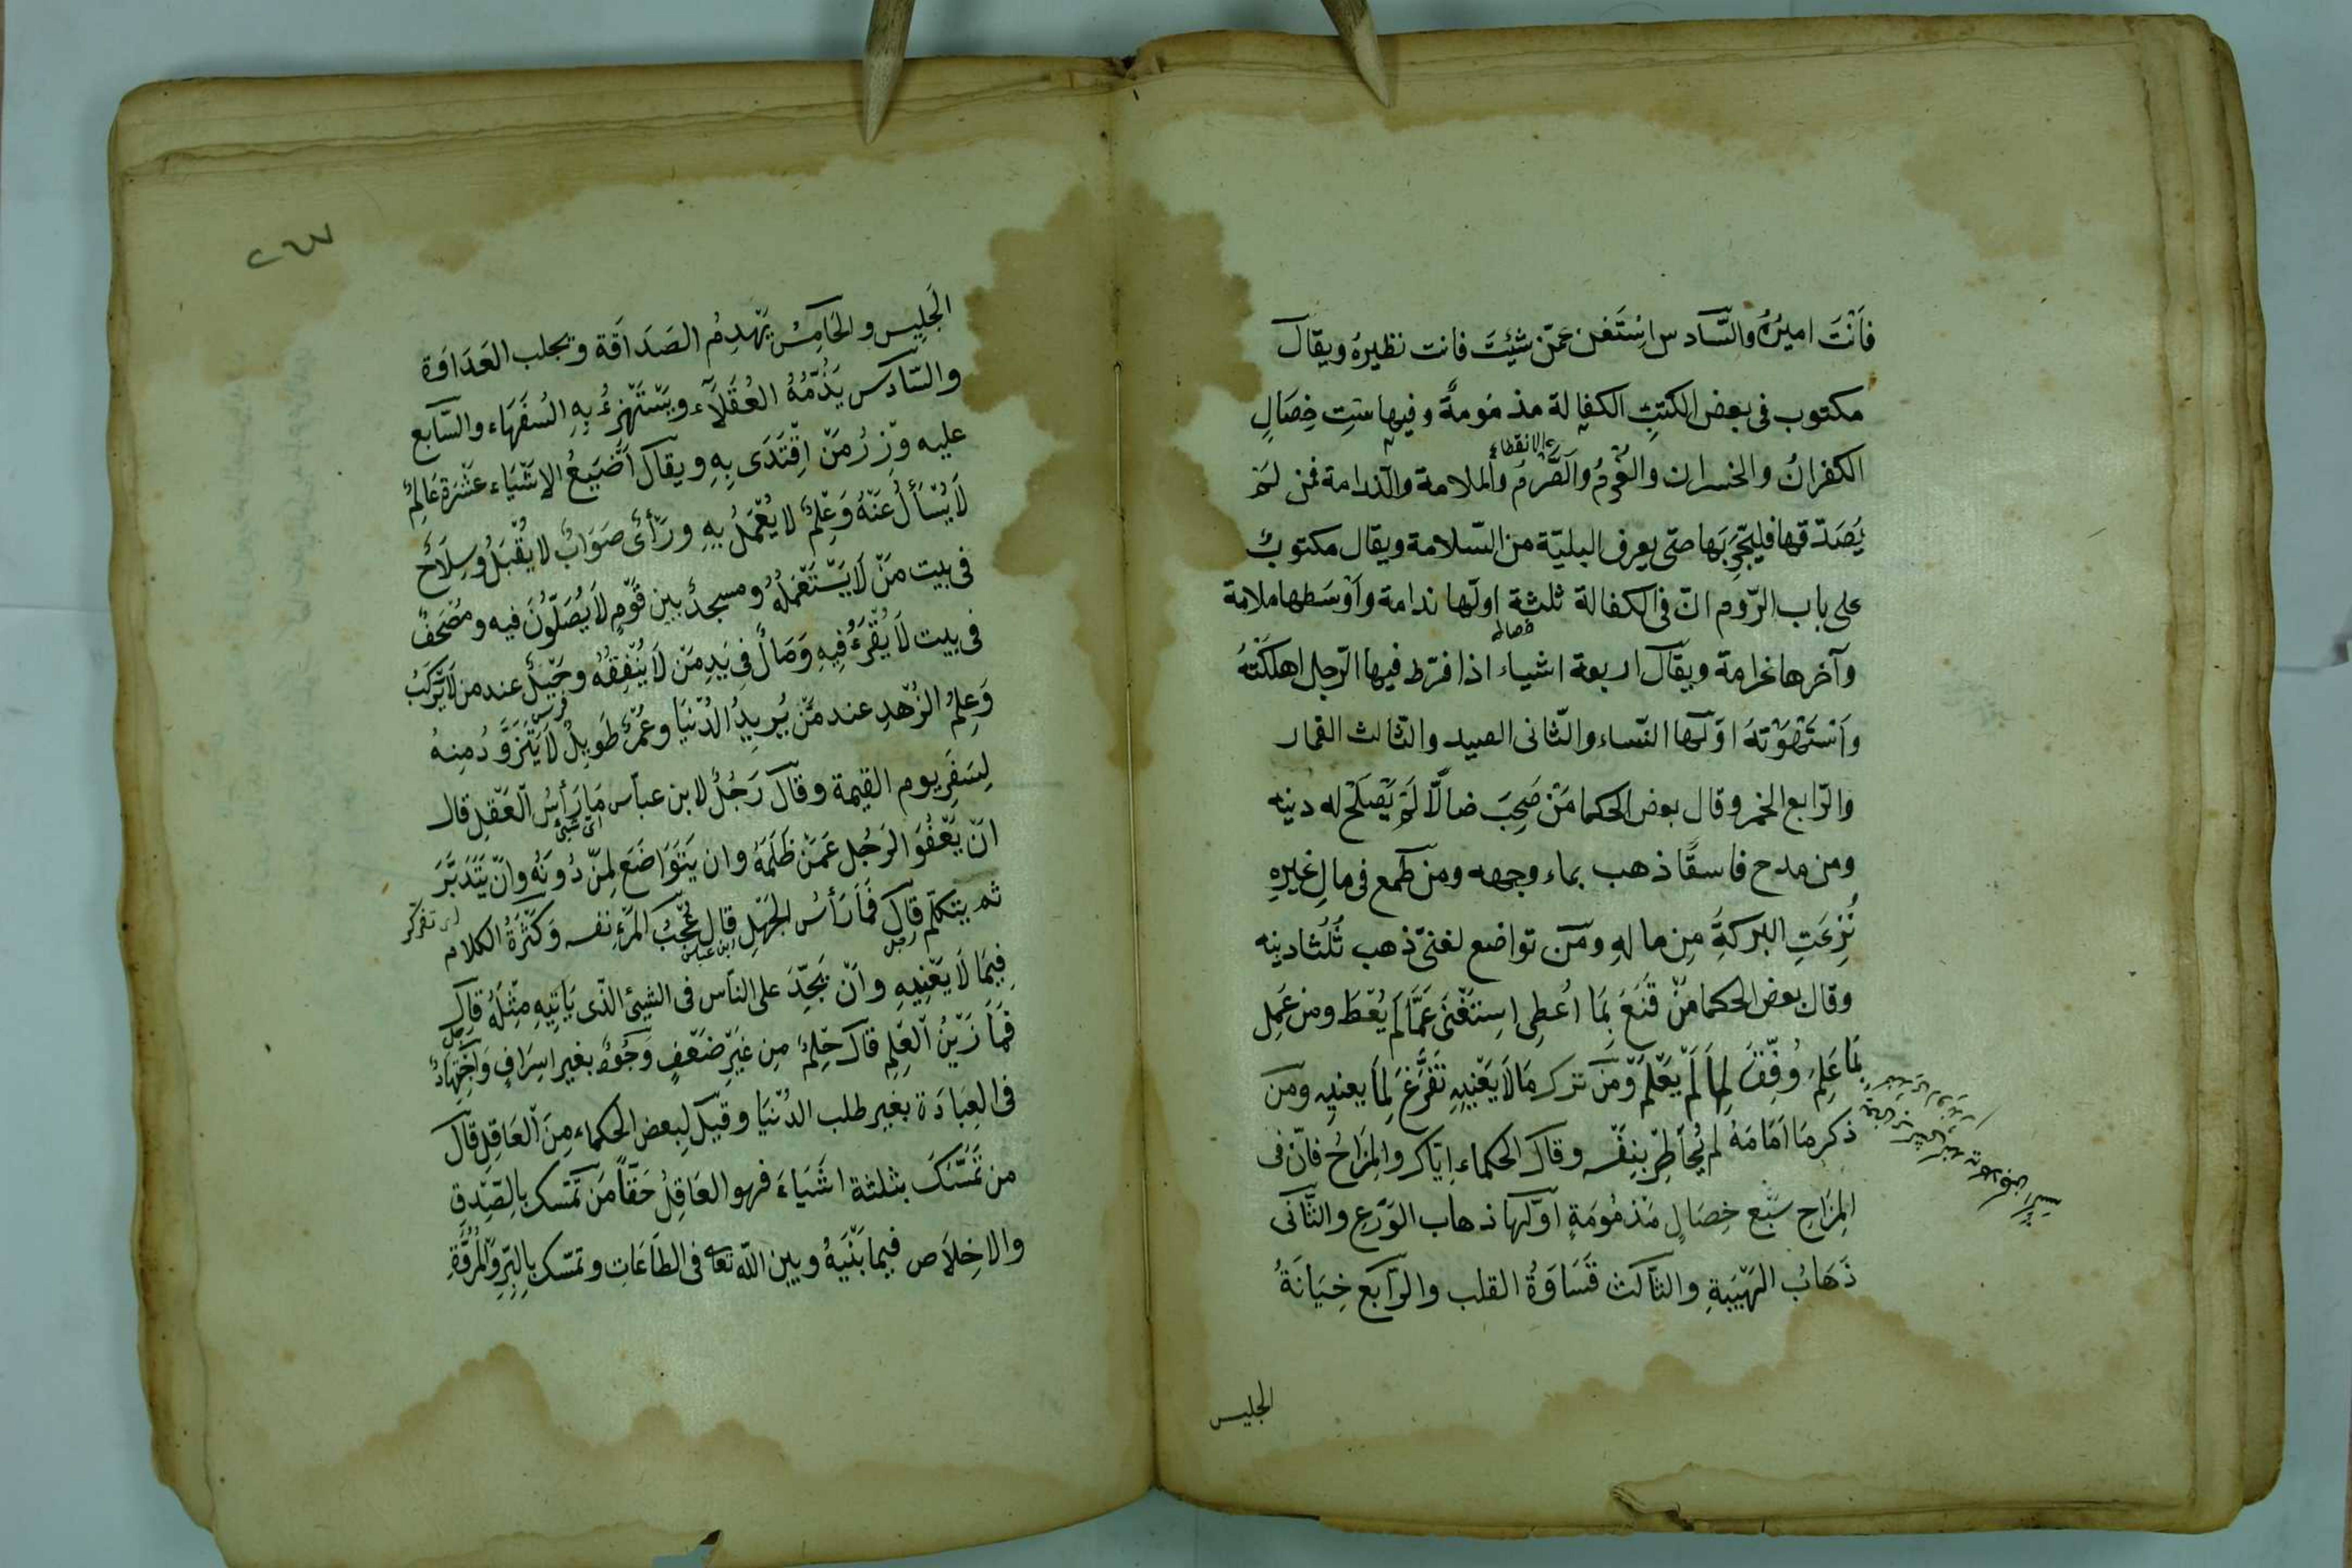 فَاَنْتَ اميرُهُ والسّادس اِسْتَغن عَمّن شيْتَ فانت نظيرهُ ويقال
مكتوب فى بعض الكتبِ الكفالة مذمومةً وفيها ستِ خِصَالٍ
الكفرانُ والخسران والغُرمُ والصَّرمُ والملامة والنّدامة فمن لَمْ
الانقطاع
يُصَدّقها فليُجَرِّبَها حتى يعرف البليّة من السّلامة ويقال مكتوبٌ
على باب الرّوم انّ فى الكفالة ثلثة اولّها ندامة وَاَوْسَطها ملامة
خصاله
وآخرها غرامة ويقال اربعة اشياء اذا فرّط فيها الرّجل اهلكَتْهُ
وَاَسْتَهْوَتْهُ اوّلها النّساء والثّانى الصيد والثّالث القمار
والرّابع الخمر وقال بعض الحكما مَنْ صَحِبَ ضالًّا لَمْ يَصْلَحْ له دينه
ومن مدح فاسقًا ذهب بماء وجهه ومن طمع فى مالِ غيرهِ
نُزِعَتِ البركةَُ مِن مالهِ ومَن تواضع لغنىّ ذهب ثُلُثا دينه
وقال بعض الحكما مَنْ قَنَعَ بِمَا اُعطِى اِستَغْنَى عَمَّا لَم يُعْطَ ومن عَمِل
بَمَا عَلِمَ وُفِّقَ لِمَا لَمْ يَعْلَمْ وَمَنْ ترك مَا لَا يَعْنِيهِ تَفَرَّغَ لِمَا يعنيِه ومَن
ذكر مَا اَمَامَهُ لم يُخَاطِرْ بنِفْسه وقال الحكماء اِيّاكر والمِزَاحُ فانّ فى
المِزَاحِ سَبْع خِصَالٍ مَذمُومَةٍ اوَّلها ذهاب الوَرَعِ والثَّانى
ذَهَابُ الهَيْبَةِ والثالث قَسَاوَةُ القلب والرّابع خِيَانَةُ
الجليس
الجَلِيِس والخَامِسُ يَهْدِمُ الصَدَاقَة ويجلب العَدَاوَة
والسّادس يَذُمّهُ العُقَلَآء ويَسْتَهْزِءُ بِهِ السُفَهَاء والسّابع
عليه وِزرُ مَنْ اِقْتَدَى بِهِ ويقال اَضْيَعُ الاشْيَاء عَشْرَة عَالِمٌ
لَا يُسْأَلُ عَنْهُ وَعِلمٌ لا يُعْمَلُ بِهِ ورَأْىٌ صَوَابٌ لا يُقْبَلُ وسِلَاحٌ
فى بيت مَنْ لَا يَسْتَعْمَلُهُ ومسجدٌ بين قَومٍ لَا يُصَلّوُنَ فيه ومُصْحَفٌ
فى بيت لَا يُقْرَءُ فِيهِ وَمَالٌ فِى يَدِ مَنْ لَا يُنْفِقُهُ وخَيْلٌ عند من لَا يَرْكَبُ
فرس
وَعِلمُ الزُهْدِ عند مَنْ يُرِيدُ الدُنْيَا وعُمْرٌ طَوِيلٌ لَا يَتَزَوَّدُ مِنهُ
لِسَفَرِ يوم القيمة وقال رَجُلٌ لابن عباس مَا رَأْسُ العَقْلِ قال
اى شئ
انّ يَعْفُوَ الرَجُل عَمَنْ ظَلَمَهُ وان يَتَوَاضَعَ لِمَنْ دُونَهُ وانّ يَتَدَبَّرَ
ثم يتكلّم قال فَمَا رَأسُ الجَهْلِ قال عُجْبُ المَرْءِ نفسه وكَثْرَةُ الكلام
رجل
ابن عباس
فِيمَا لَا يَعْنِيهِ وانّ يَجِدَ على النّاس فى الشيئ الّذى يَاتِيهِ مِثْلَهُ قال
رجل
فَمَا زَيْنُ العِلمِ قال حِلمٌ مِن غَيرِ ضَعْفٍ وَجُودٌ بغير اسِرَافٍ وَاجْتِهَادٌ
فى العِبَادَة بغير طلب الدُنْيَا وقيل لِبعض الحكماء مِنَ العَاقِلِ قال
من تَمَسَّكَ بثلثة اشْيَاءَ فهو العَاقِلُ حَقّاً مَن تَمّسَك بالصِّدقِ
والاخِلَاص فيما بَيْنَهُ وبين اللّه تعا فى الطَاعَاتِ وتمسّك بالِبِرِّ والمُرُوَّةِ